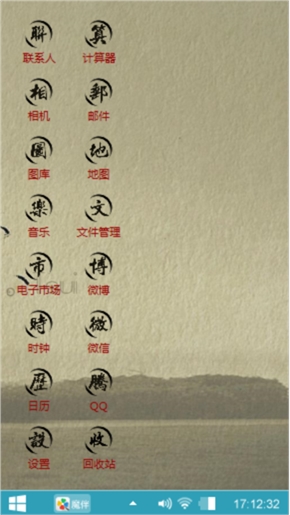 聯 算
联系人 计算器
相 郵
相机 邮件
圖 地
图库 地图
樂 文
音乐 文件管理
市 博
电子市场 微博
時 微
时钟 微信
歷 騰
日历 QQ
設 收
设置 回收站
魔伴 17:12:32